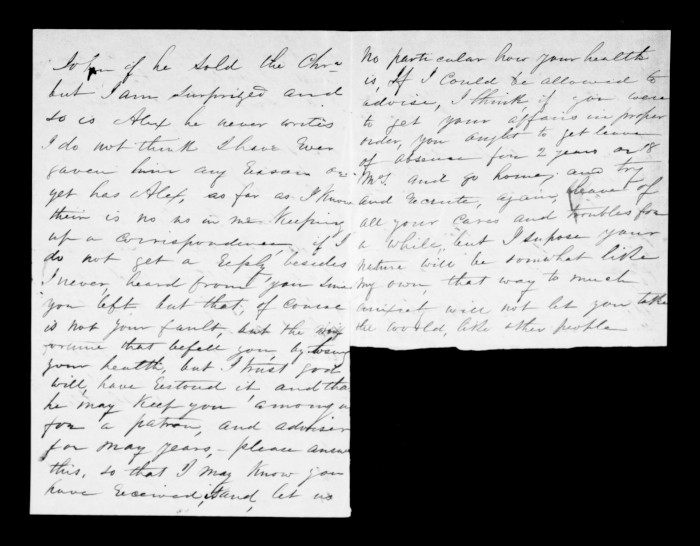 of he sold the
but I am surprized and
so is Alex he never writes
I do not think I have Ever
gaven him any Reason or
yet has Alex, as far as I Know
their is no us in me Keeping
up a correspondence if I
do not get a Reply, besides
I never, heard from you Since
you left but that, of course
is not your fault, but the
that befell you, by
your health, but I trust god
will, have Restoud it and that
he may Keep you among us
for a patron, and adviser
for may years, - please answ
this, so that I may Know you
have Received, it and, let us
No particular how your health
is, If I Could be allowed to
advise, I think, if you were
to get your affairs in proper
order, you aught to get leave
of absense for 2 years or 18
Mos and go home, and try
and Recrute, again, of
all your Cares and troubles for
a while, but I supose your
nature will be somehat like
my own, that way to much
anixety will not let you take
the world, like other people